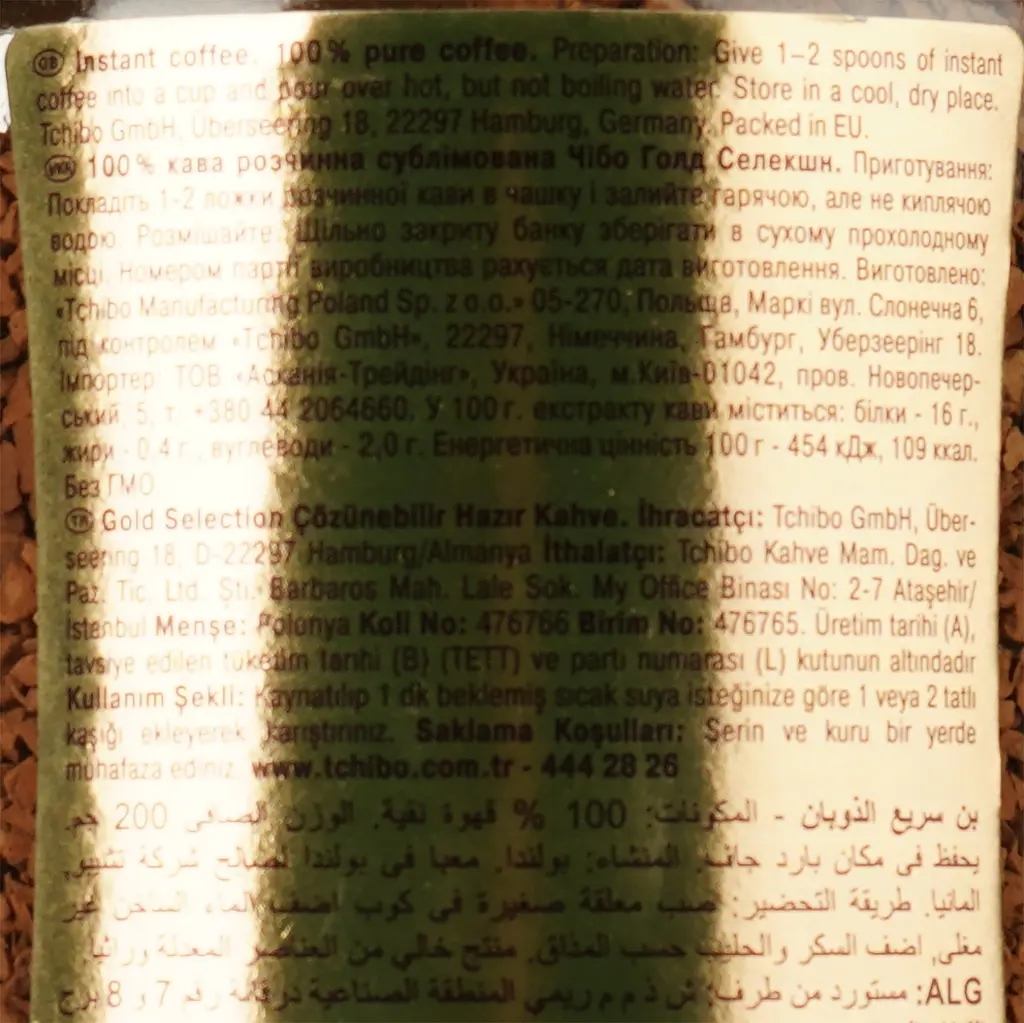 GB Instant coffee. 100% pure coffee. Preparation: Give 1–2 spoons of instant
coffee into a cup and pour over hot, but not boiling water. Store in a cool, dry place.
Tchibo GmbH, Überseering 18, 22297 Hamburg, Germany. Packed in EU.
UKR 100% кава розчинна сублімована Чібо Голд Селекшн. Приготування:
Покладіть 1-2 ложки розчинної кави в чашку і залийте гарячою, але не киплячою
водою. Розмішайте. Щільно закриту банку зберігати в сухому прохолодному
місці. Номером партії виробництва рахується дата виготовлення. Виготовлено:
«Tchibo Manufacturing Poland Sp. z o.o.» 05-270, Польща, Маркі вул. Слонечна 6,
під контролем «Tchibo GmbH», 22297, Німеччина, Гамбург, Уберзеерінг 18.
Імпортер: ТОВ «Асканія-Трейдінг», Україна, м.Київ-01042, пров. Новопечер-
ський, 5, т. +380 44 2064660. У 100 г. екстракту кави міститься: білки - 16 г.,
жири - 0,4 г., вуглеводи - 2,0 г. Енергетична цінність 100 г - 454 кДж, 109 ккал.
Без ГМО
TR Gold Selection Çözünebilir Hazır Kahve. İhracatçı: Tchibo GmbH, Über-
seering 18, D-22297 Hamburg/Almanya İthalatçı: Tchibo Kahve Mam. Dag. ve
Paz. Tic. Ltd. Şti. Barbaros Mah. Lale Sok. My Office Binası No: 2-7 Ataşehir/
İstanbul Menşe: Polonya Koli No: 476766 Birim No: 476765. Üretim tarihi (A),
tavsiye edilen tüketim tarihi (B) (TETT) ve parti numarası (L) kutunun altındadır
Kullanım Şekli: Kaynatılıp 1 dk beklemiş sıcak suya isteğinize göre 1 veya 2 tatlı
kaşığı ekleyerek karıştırınız. Saklama Koşulları: Serin ve kuru bir yerde
muhafaza ediniz. www.tchibo.com.tr - 444 28 26
بن سريع الذوبان - المكونات: 100 % قهوة نقية. الوزن الصافى 200 جم.
يحفظ فى مكان بارد جاف. المنشاء: بولندا. معبا فى بولندا لصالح شركة تشيبو,
المانيا. طريقة التحضير: صب معلقة صغيرة فى كوب اضف الماء الساخن غير
مغلى, اضف السكر والحليب حسب المذاق. منتج خالي من العناصر المعدلة وراثيا
ALG: مستورد من طرف: ش ذ م م ريمي المنطقة الصناعية رقم 7 و 8 برج